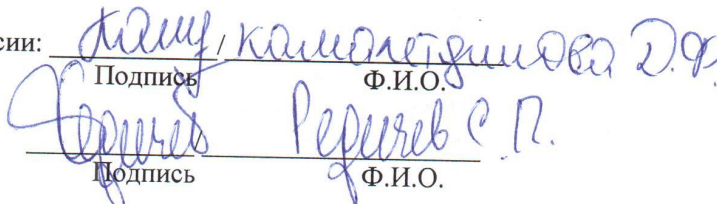 сии: / Камалетдинова Д.Ф.
Подпись Ф.И.О.
/ Редичев С.П.
Подпись Ф.И.О.